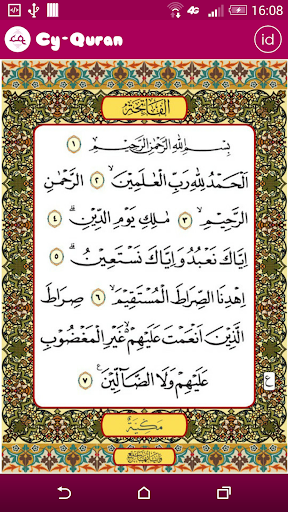 16:08
Cy-Quran
id
الفاتحة
بِسْمِ اللهِ الرَّحْمٰنِ الرَّحِيْمِ ۝١
اَلْحَمْدُ لِلّٰهِ رَبِّ الْعٰلَمِيْنَۙ ۝٢ الرَّحْمٰنِ
الرَّحِيْمِۙ ۝٣ مٰلِكِ يَوْمِ الدِّيْنِۗ ۝٤
اِيَّاكَ نَعْبُدُ وَاِيَّاكَ نَسْتَعِيْنُۗ ۝٥
اِهْدِنَا الصِّرَاطَ الْمُسْتَقِيْمَۙ ۝٦ صِرَاطَ
الَّذِيْنَ اَنْعَمْتَ عَلَيْهِمْ ەۙ غَيْرِ الْمَغْضُوْبِ
عَلَيْهِمْ وَلَا الضَّاۤلِّيْنَ ۝٧
ع
مكية